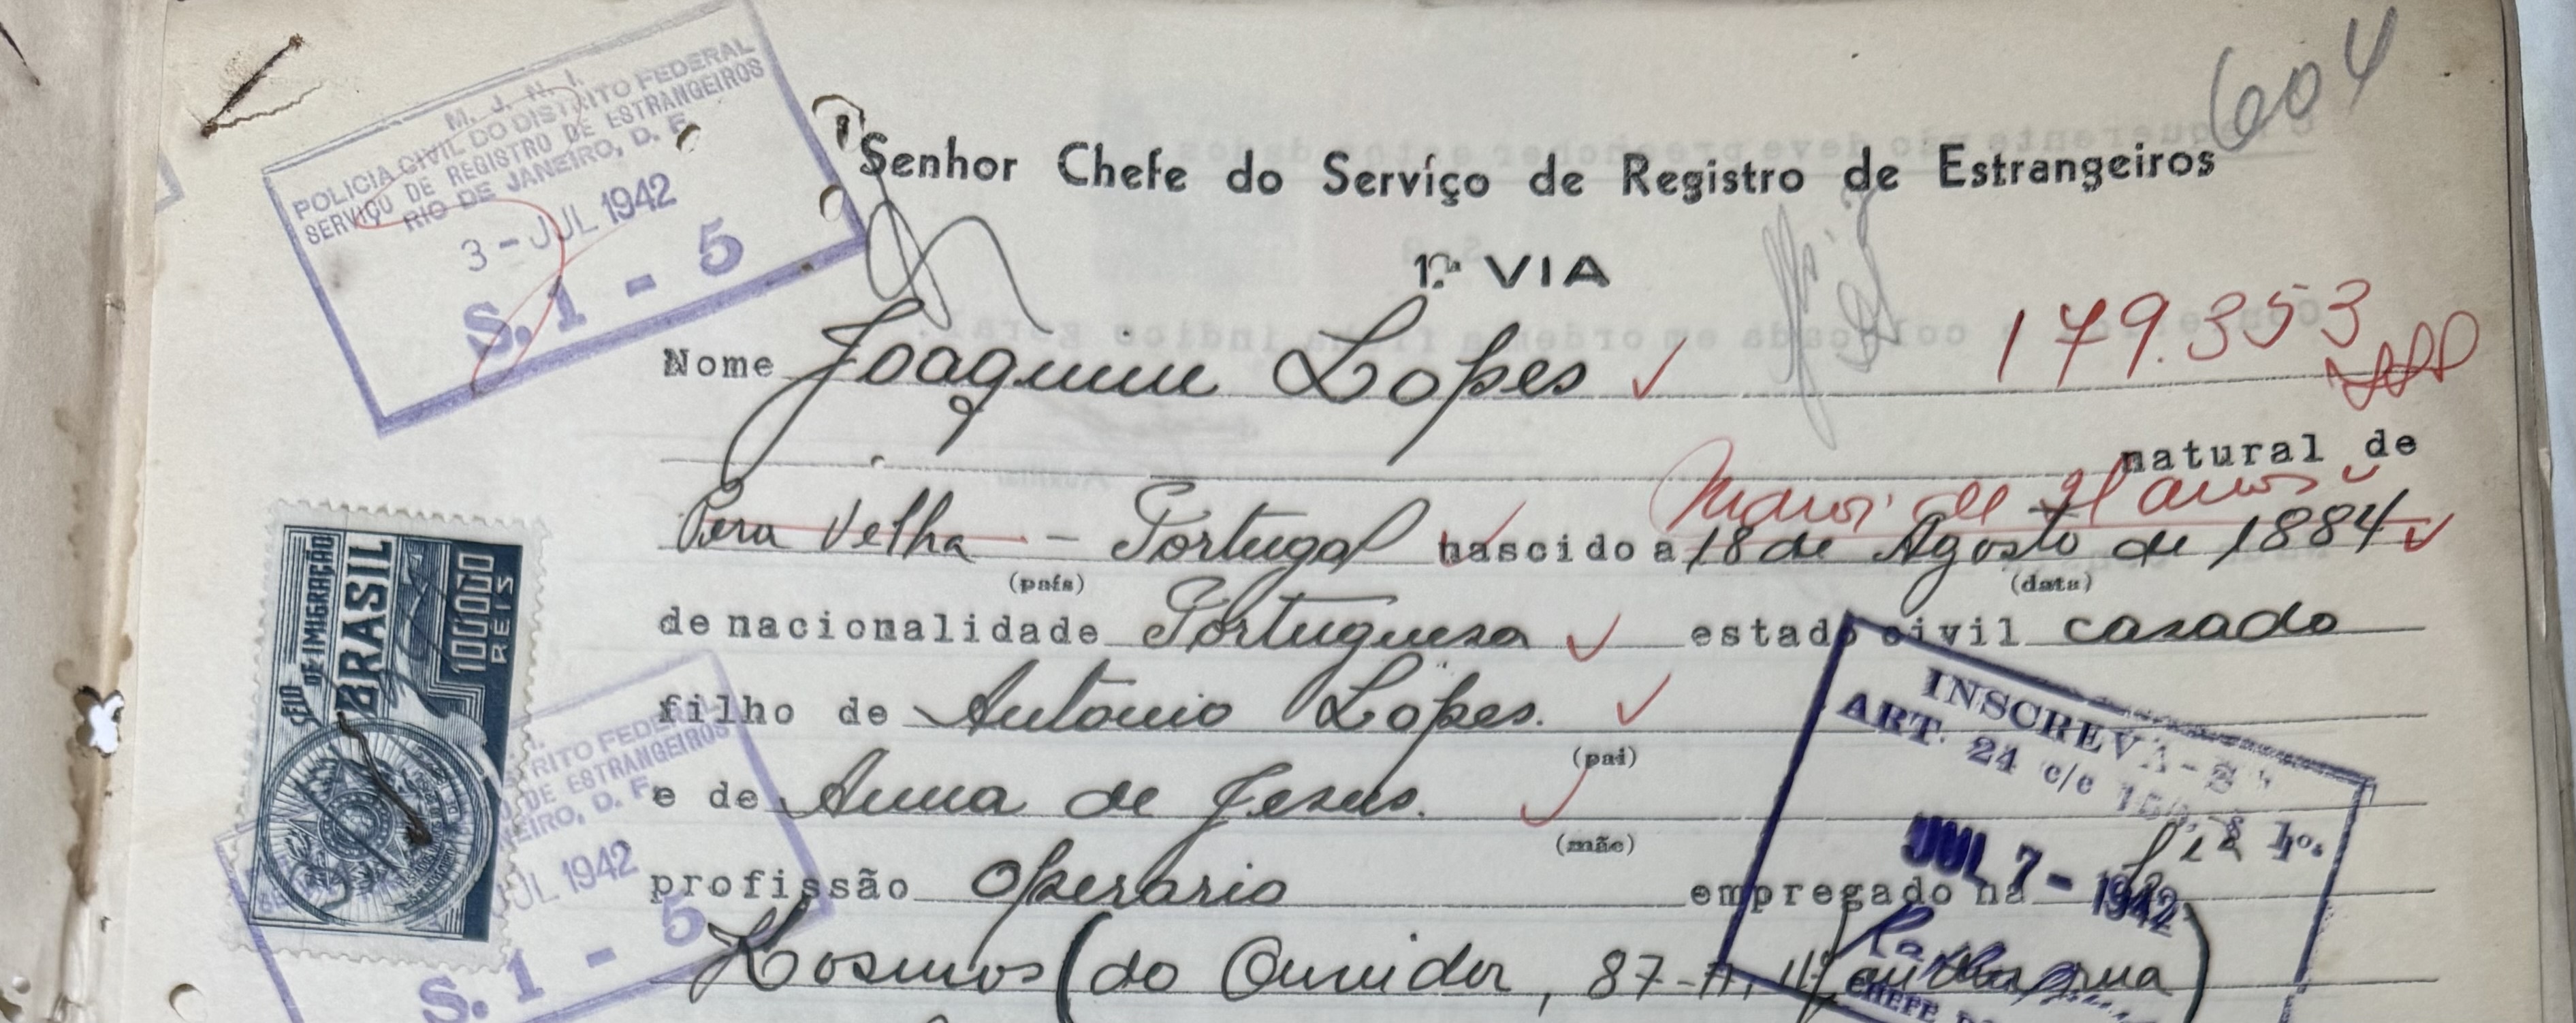 604
M. J. N. I.
POLICIA CIVIL DO DISTRITO FEDERAL
SERVIÇO DE REGISTRO DE ESTRANGEIROS
RIO DE JANEIRO, D. F.
3 - JUL 1942
S. 1 - 5
Senhor Chefe do Serviço de Registro de Estrangeiros
1ª VIA
179.353
Nome Joaquim Lopes
natural de
Maior de 21 anos
Pera Velha - Portugal nascido a 18 de Agosto de 1884
(país) (data)
de nacionalidade Portuguesa estado civil casado
filho de Antonio Lopes.
(pai)
e de Anna de Jesus.
(mãe)
profissão Operario empregado na
Kosmos (do Ouvidor, 87- rua)
SELO DE IMIGRAÇÃO
BRASIL
100\$000
REIS
TRITO FEDERAL
DE ESTRANGEIROS
NEIRO, D. F.
JUL 1942
S. 1 - 5
INSCREVA-SE
ART. 24 c/c 1º.
JUL 7 - 1942
CHEFE